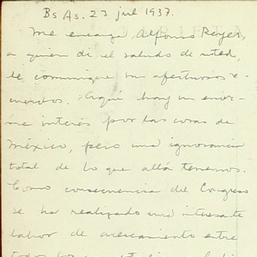 Bs As. 23 jul 1937.
Me encargó Alfonso Reyes,
a quien di el saludo de usted,
le comunique un afectuoso re-
cuerdo. Aquí hay un enor-
me interés por las cosas de
México, pero una ignorancia
total de lo que allá tenemos.
Como consecuencia del Congreso
se ha realizado una interesante
labor de acercamiento entre
todos los